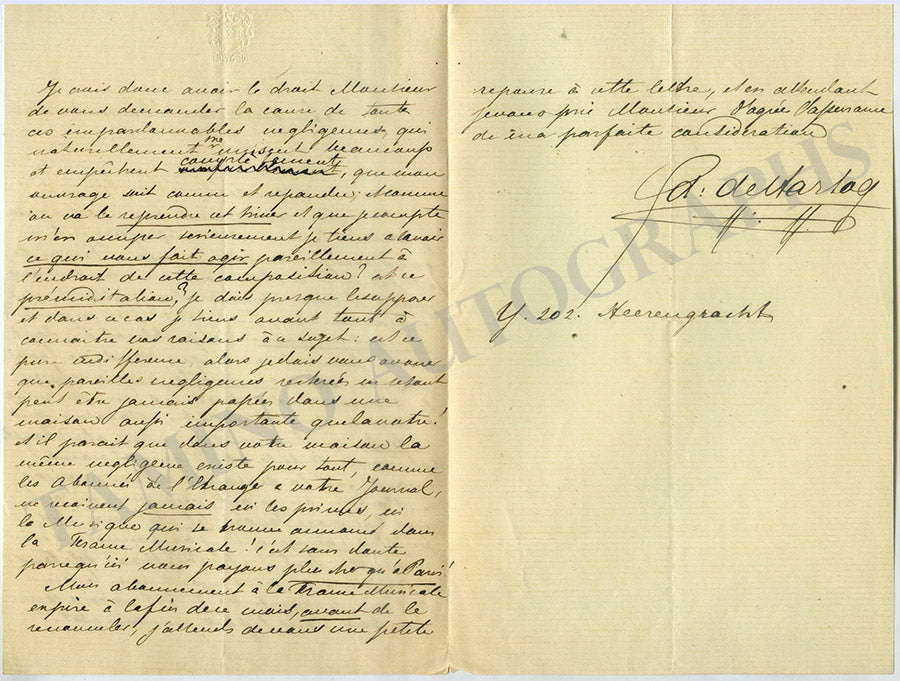 Je crois donc avoir le droit Monsieur
de vous demander la cause de toute
ces impardonnables negligences, qui
naturellement me nuisent beaucoup
et empêchent complètement, que mon
ouvrage soit connu et repandu; et comme
on va le reprendre cet hiver et que je compte
m'en occuper serieusement je tiens a savoir
ce qui vous fait agir pareillement à
l'endroit de cette composition? est ce
préméditation? je dois presque le supposer
et dans ce cas je tiens avant tout à
connaitre vos raisons à ce sujet: est ce
pure indifference alors je dois vous avouer
que pareilles negligences
peut être jamais passées dans une
maison aussi importante que la votre!
et il parait que dans votre maison la
même negligence existe pour tout comme
les Abonnés à l'Etranger a votre Journal,
ne recoivent jamais ni les primes, ni
la Musique qui se trouve annoncé dans
la France Musicale! c'est sans doute
parcequ'ici nous payons plus cher qu'a Paris!
Mon abonnement à la France Musicale
expire à la fin de ce mois, avant de le
renouveler, j'attends de vous une petite
reponse à cette lettre, et en attendant
je vous prie Monsieur d'agréer l'assurance
de ma parfaite consideration
Ed: de Hartog
Y. 202. Heerengracht
TAMINO AUTOGRAPHS